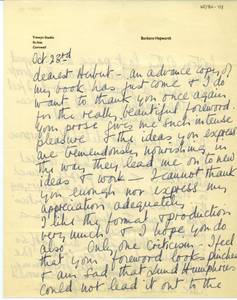 Trewyn Studio
St. Ives
Cornwall
Barbara Hepworth
Oct 23rd
dearest Herbert – an advance copy of
my book has just come & I do
want to thank you once again
for the really beautiful foreword.
Your prose gives me such intense
pleasure & the ideas you express
are tremendously nourishing in
the way they lead me on to new
ideas & work – I cannot thank
you enough nor express my
appreciation adequately
I like the format & production
very much & I hope you do
also. Only one criticism – I feel
that your foreword looks pinched
& am sad that Lund Humphries
could not lead it out to the